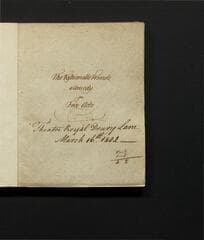 The Fashionable Friends
a Comedy
in
Five Acts
Theatre Royal Drury Lane
March 16th 1802